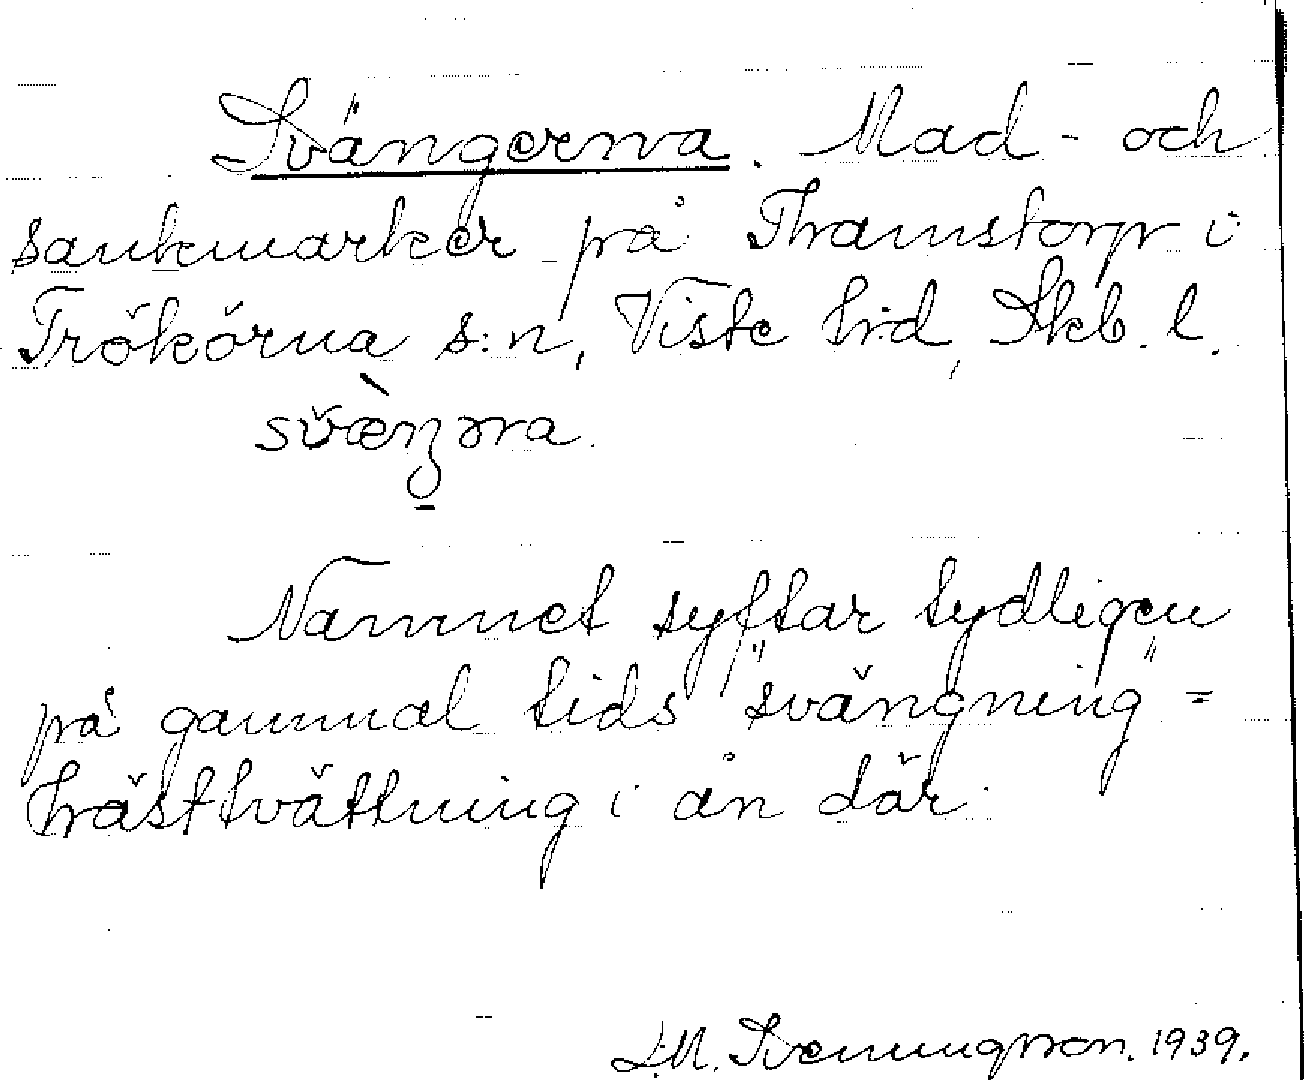 Svängerna. Mad- och
sankmarker på Thamstorp i
Trökörna s:n, Viste hrd, Skb. l.
Namnet syftar tydligen
på gammal tids "svängning" =
hästtvättning i ån där.
L.M. Svenungsson. 1939.